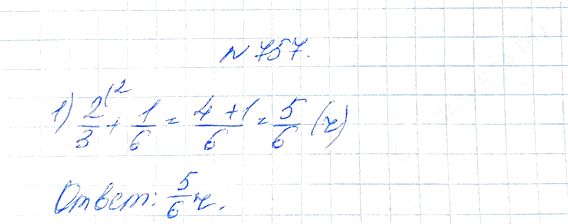 № 757.
1) 2/3 (2 + 1/6 = 4+1/6 = 5/6 (ч)
Ответ: 5/6 ч.